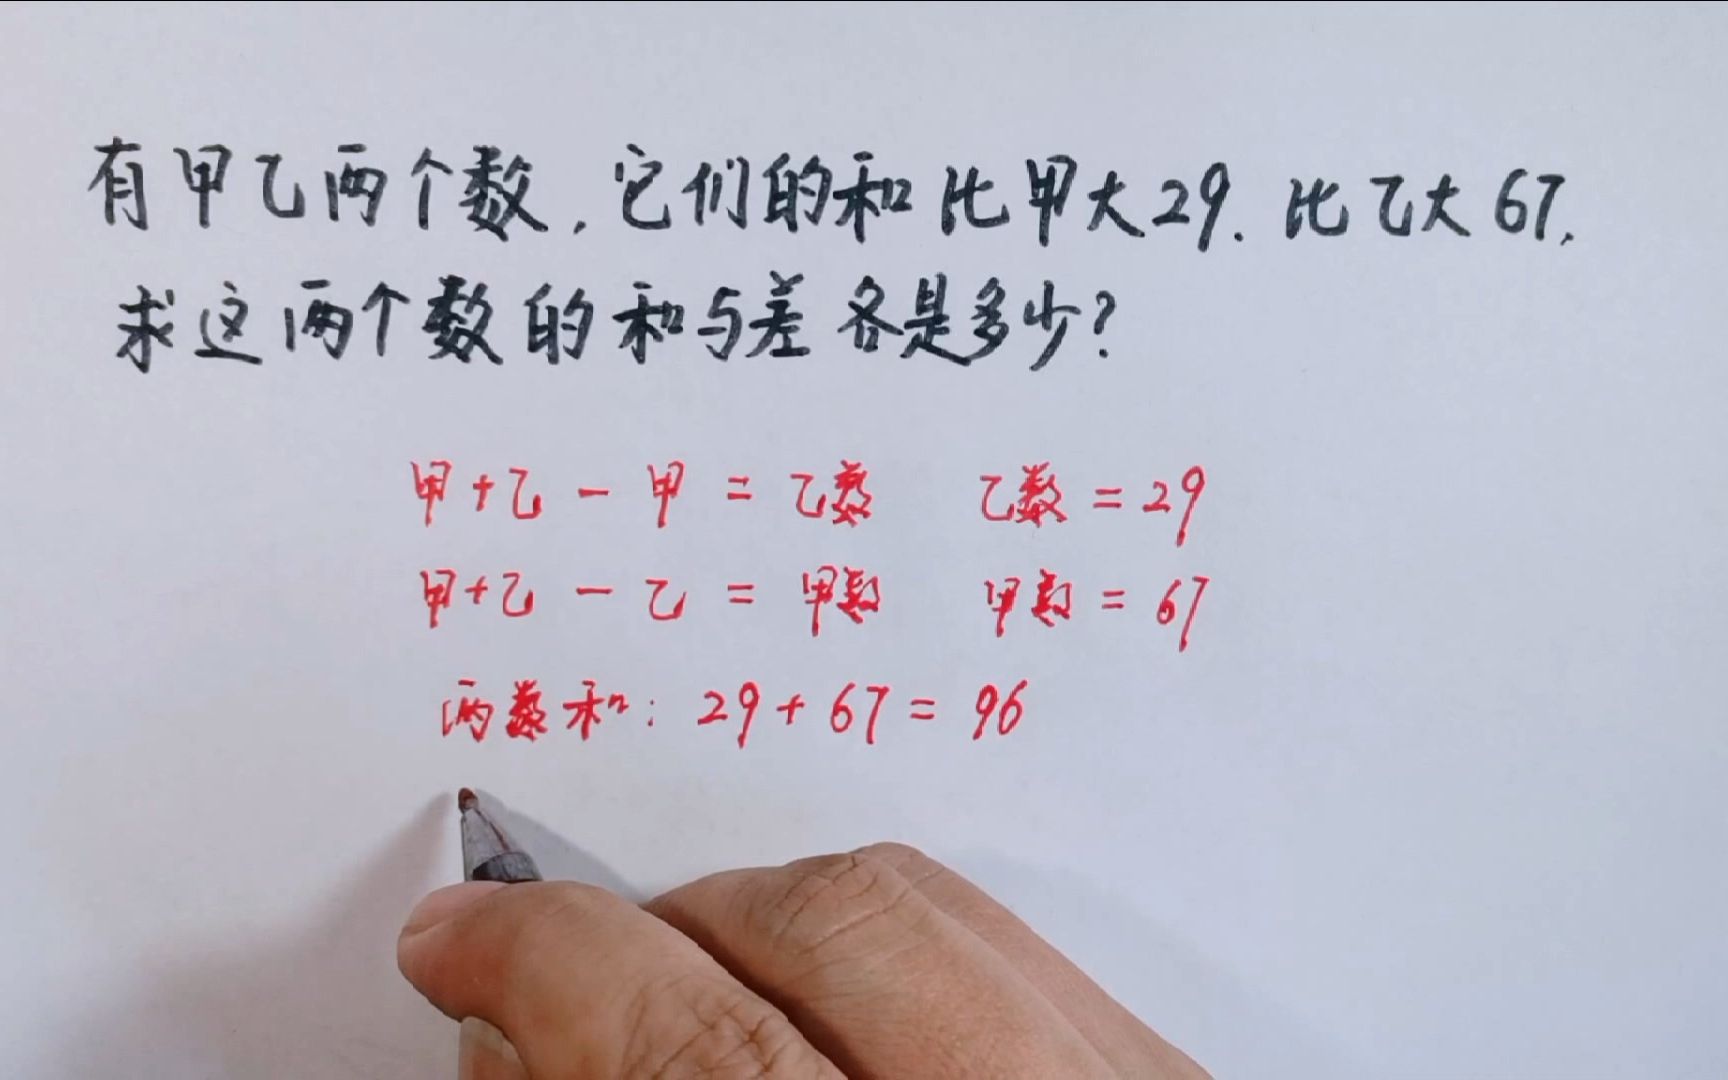 有甲乙两个数,它们的和比甲大29.比乙大67.
求这两个数的和与差各是多少?
甲+乙-甲=乙数 乙数=29
甲+乙-乙=甲数 甲数=67
两数和:29+67=96